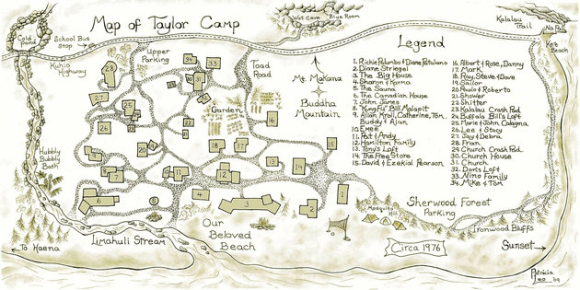 Map of Taylor Camp
Cold Pond
School Bus Stop
Wet Cave
Blue Room
Kalalau Trail
Na Pali
Ke'e Beach
Kuhio Highway
Upper Parking
Toad Road
Mt. Makana
Buddha Mountain
Garden
Hubbly Bubbly Bath
Legend
1. Richie Palumbo & Diane
2. Diane Striegel
3. The Big House
4. Sharon & Korna
5. The Sauna
6. The Canadian House
7. John Janes
8. "KungFu" Bill Malapit
9. Alan Kroll, Catherine, Tom,
Buddy & Alan
10.
11. Pat & Andy
12. Hamilton Family
13. Tony's Loft
14. The Free Store
15. David & Ezekial Pearson
16. Albert & Rose, Danny
17. Mark
18. Roy, Steve & Dave
19. Sailor
20. Paulo & Roberto
21. Shower
22. Shitter
23. Kalalau Crash Pad
24. Buffalo Bill's Loft
25. Marie & John
26. Leo & Stacy
27. Jay & Debra
28.
29. Church Crash Pad
30. Church House
31. Church
32. Don's Loft
33. Nino Family
34. Mike & Tom
Sherwood Forest
Parking
Mosquito Hill
Ironwood Bluffs
Limahuli Stream
Our
Beloved
Beach
Circa 1976
To Haena
Sunset
Patricia